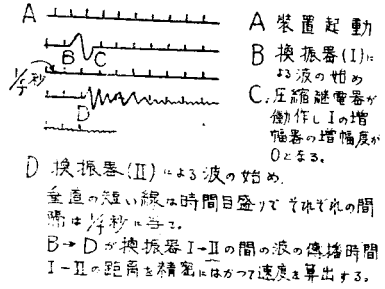 A
B C
1/5秒
D
A 装置起動
B 換振器(I)に
よる波の始め
C. 圧縮継電器が
働作しIの増
幅器の増幅度が
0となる。
D 換振器(II)による波の始め.
垂直の短い線は時間目盛りで それぞれの間
隔は1/5秒に当て。
B→Dが換振器I→IIの間の波の傳播時間
I−IIの距離を精密にはかつて速度を算出する。